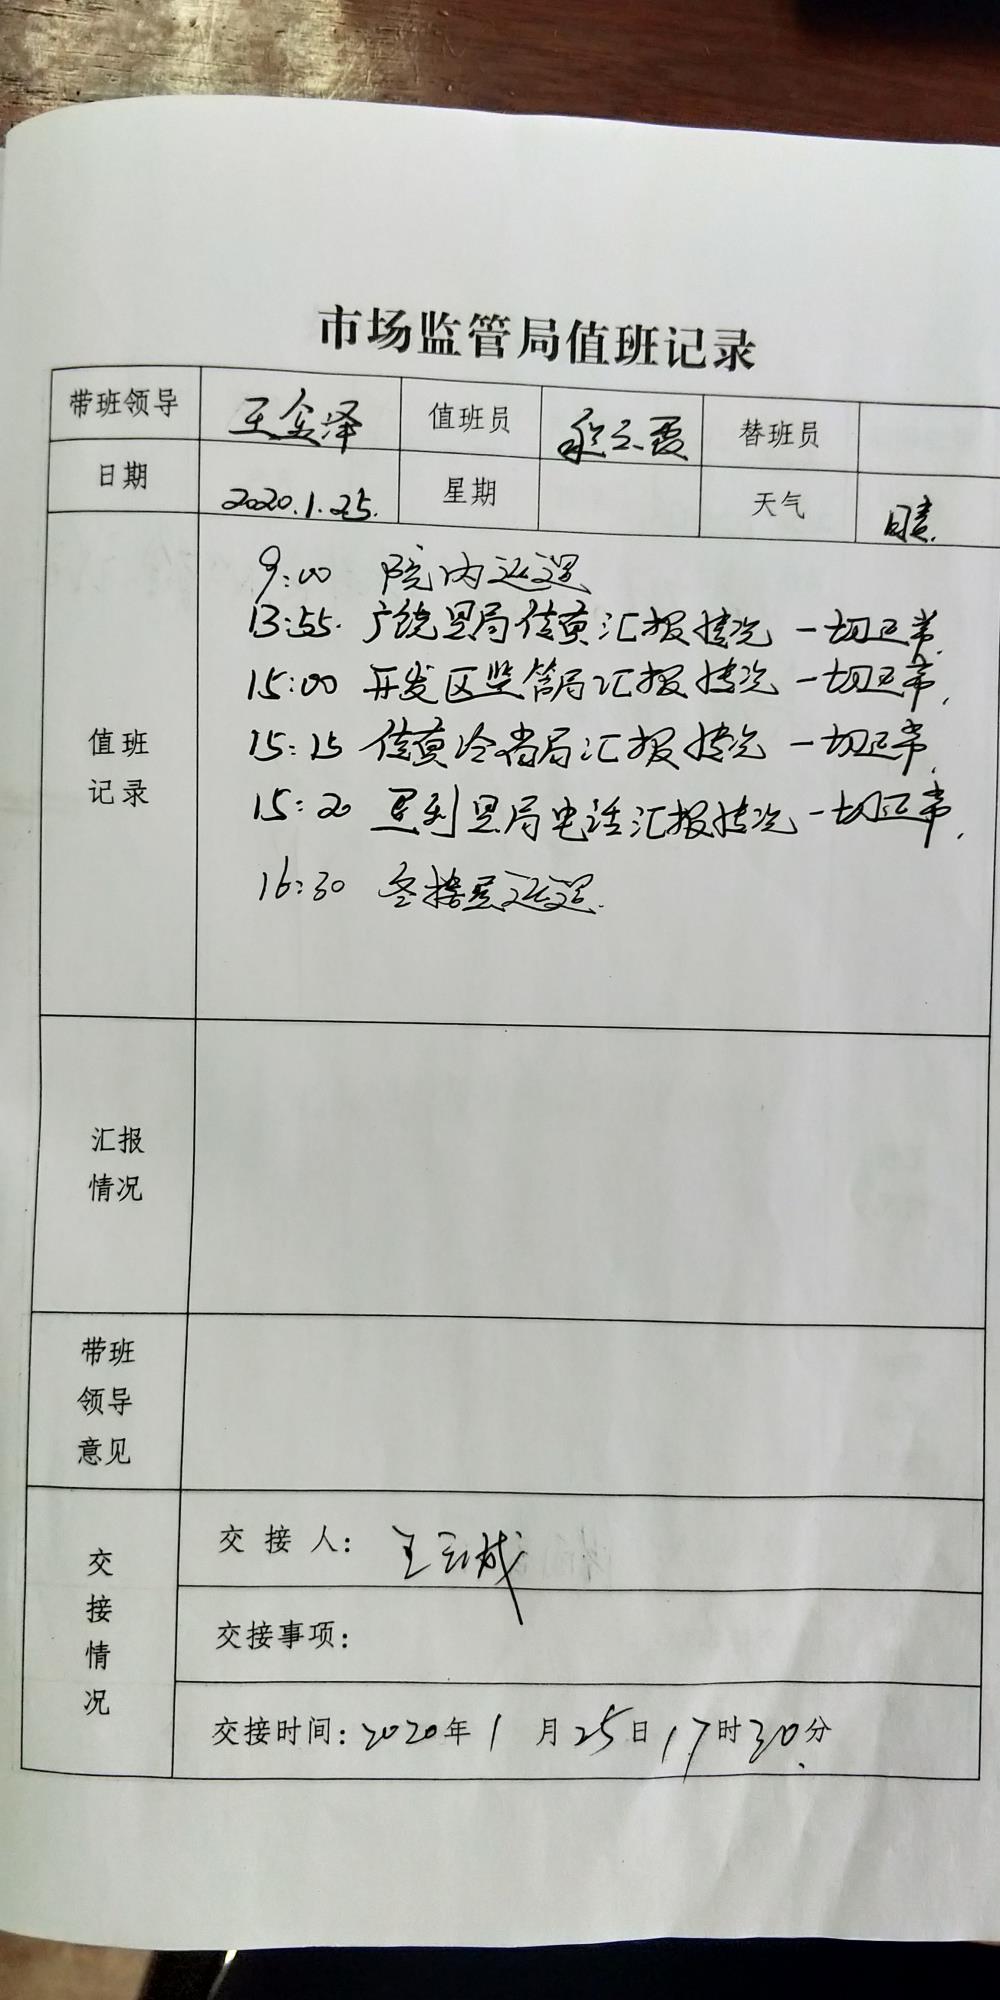 市场监管局值班记录
带班领导 值班员 替班员
日期 2020.1.25. 星期 天气 晴.
值班记录
9:00 院内巡逻
13:55. 广饶县局 汇报情况 一切正常.
15:00 开发区监管局汇报情况 一切正常.
15:15 局汇报情况 一切正常.
15:20 垦利县局电话汇报情况 一切正常.
16:30 巡逻.
汇报情况
带班领导意见
交接情况
交接人: 王
交接事项:
交接时间: 2020年1月25日17时30分